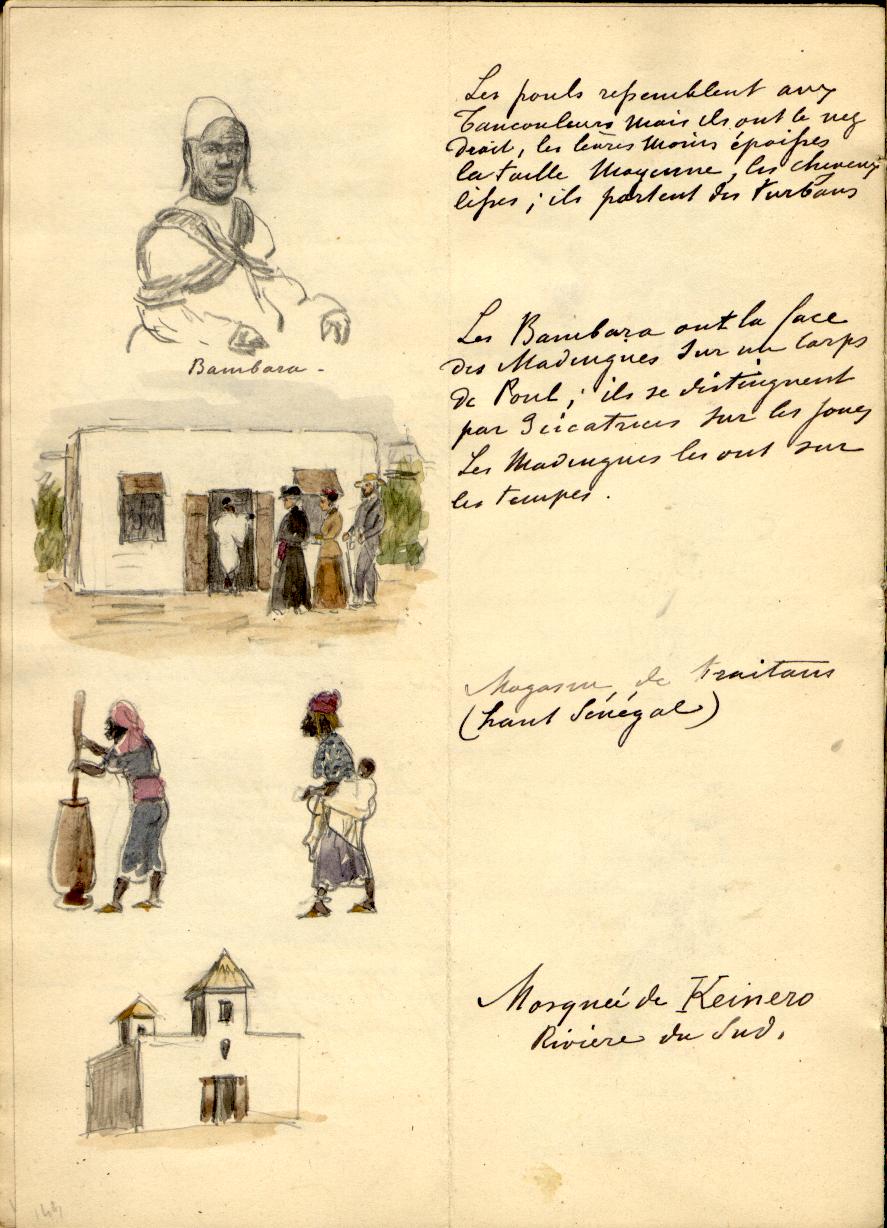 Les pouls ressemblent aux
Toucouleurs mais ils ont le nez
droit, les lèvres moins épaisses
la taille moyenne, les cheveux
lisses ; ils portent des turbans
Bambara -
Les Bambara ont la face
des Madingues sur un corps
de Poul ; ils se distinguent
par 3 cicatrices sur les joues
Les Madingues les ont sur
les tempes .
Magasin de traitans
(haut Sénégal)
Mosquée de Keinero
Rivière du Sud.